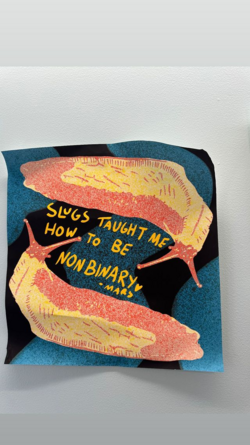 SLUGS TAUGHT ME
HOW TO BE
NONBINARY
-MARS